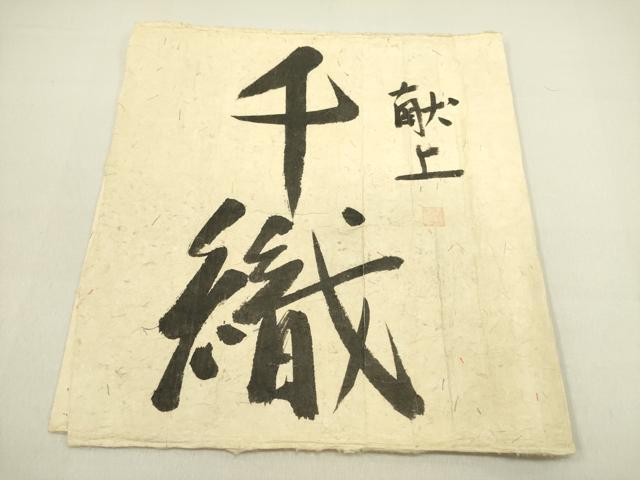 献上
千織